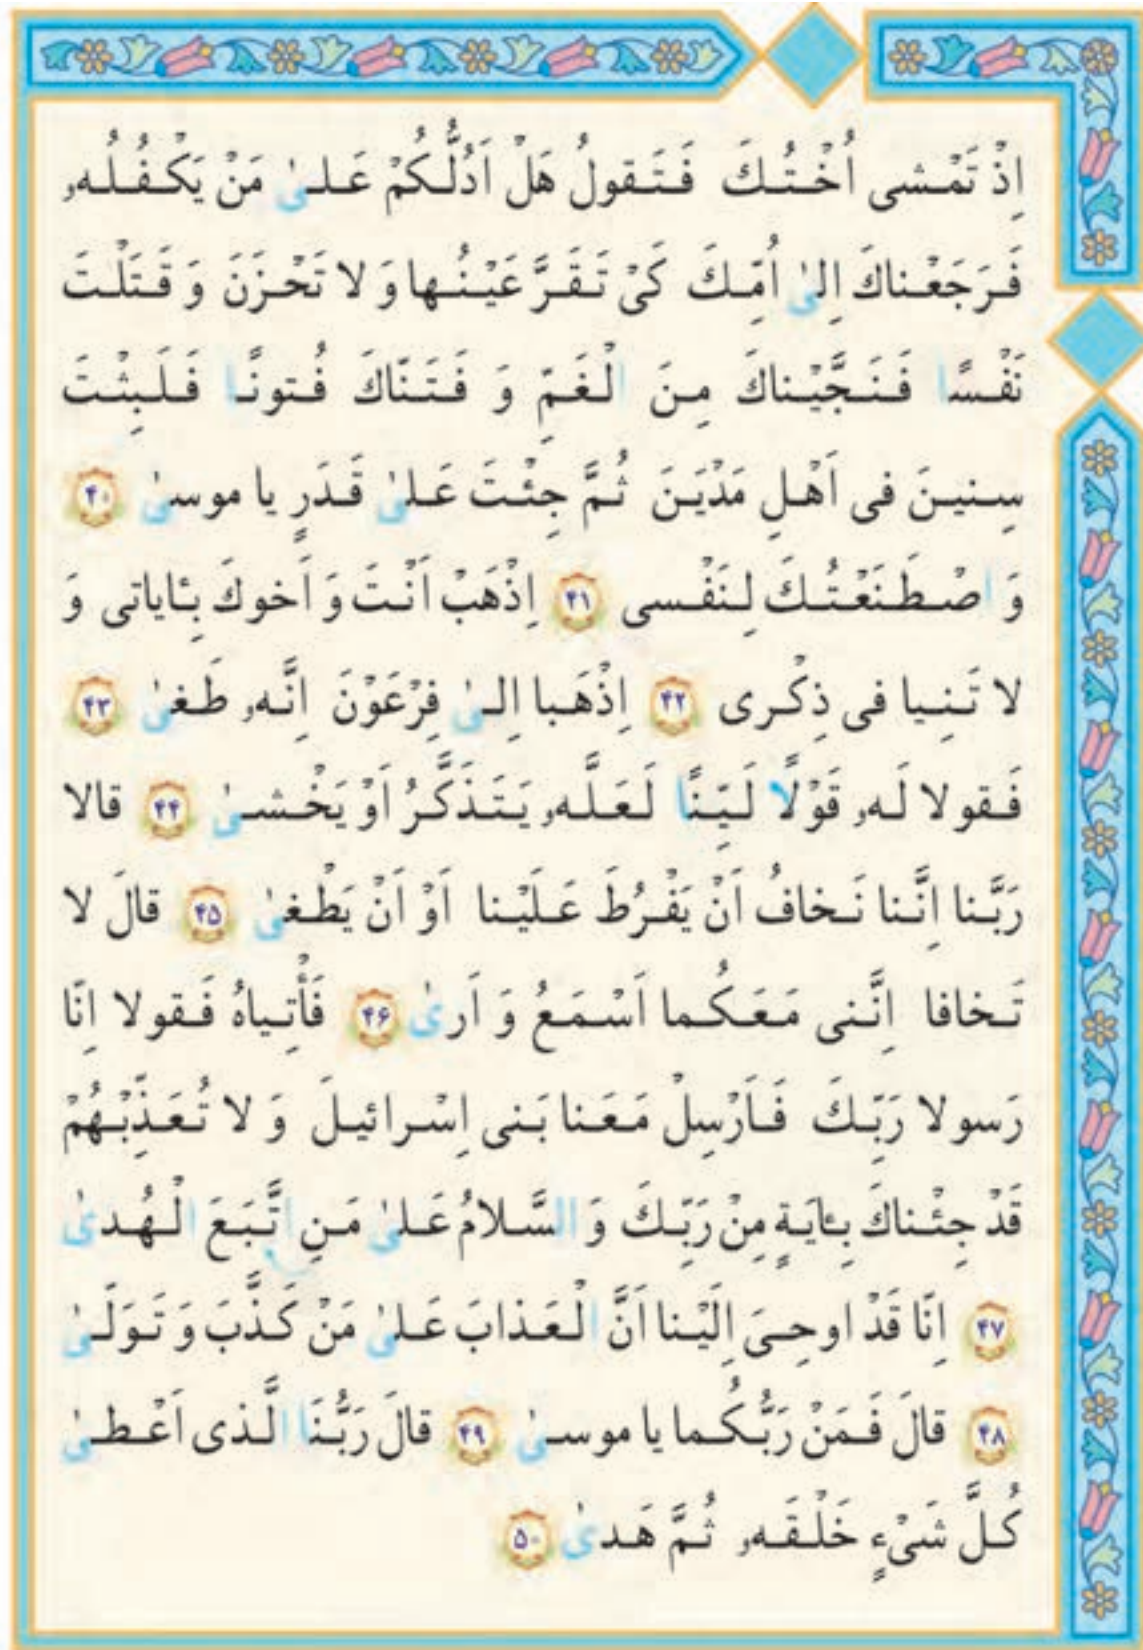 اِذْ تَمْشی اُخْتُكَ فَتَقولُ هَلْ اَدُلُّكُمْ عَلیٰ مَنْ یَكْفُلُهٗ
فَرَجَعْناكَ اِلیٰ اُمِّكَ كَیْ تَقَرَّ عَیْنُها وَ لا تَحْزَنَ وَ قَتَلْتَ
نَفْسًا فَنَجَّیْناكَ مِنَ الْغَمِّ وَ فَتَنّاكَ فُتونًا فَلَبِثْتَ
سِنینَ فی اَهْلِ مَدْیَنَ ثُمَّ جِئْتَ عَلیٰ قَدَرٍ یا موسیٰ ۴۰
وَ اصْطَنَعْتُكَ لِنَفْسی ۴۱ اِذْهَبْ اَنْتَ وَ اَخوكَ بِئایاتی وَ
لا تَنِیا فی ذِكْری ۴۲ اِذْهَبا اِلیٰ فِرْعَوْنَ اِنَّهٗ طَغیٰ ۴۳
فَقولا لَهٗ قَوْلًا لَیِّنًا لَعَلَّهٗ یَتَذَكَّرُ اَوْ یَخْشیٰ ۴۴ قالا
رَبَّنا اِنَّنا نَخافُ اَنْ یَفْرُطَ عَلَیْنا اَوْ اَنْ یَطْغیٰ ۴۵ قالَ لا
تَخافا اِنَّنی مَعَكُما اَسْمَعُ وَ اَریٰ ۴۶ فَأْتِیاهُ فَقولا اِنّا
رَسولا رَبِّكَ فَاَرْسِلْ مَعَنا بَنی اِسْرائیلَ وَ لا تُعَذِّبْهُمْ
قَدْ جِئْناكَ بِئایَةٍ مِنْ رَبِّكَ وَ السَّلامُ عَلیٰ مَنِ اتَّبَعَ الْهُدیٰ
۴۷ اِنّا قَدْ اوحِیَ اِلَیْنا اَنَّ الْعَذابَ عَلیٰ مَنْ كَذَّبَ وَ تَوَلّیٰ
۴۸ قالَ فَمَنْ رَبُّكُما یا موسیٰ ۴۹ قالَ رَبُّنَا الَّذی اَعْطیٰ
كُلَّ شَیْءٍ خَلْقَهٗ ثُمَّ هَدیٰ ۵۰